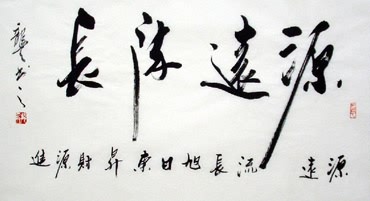 源遠流長
源遠流長旭日東昇財源進